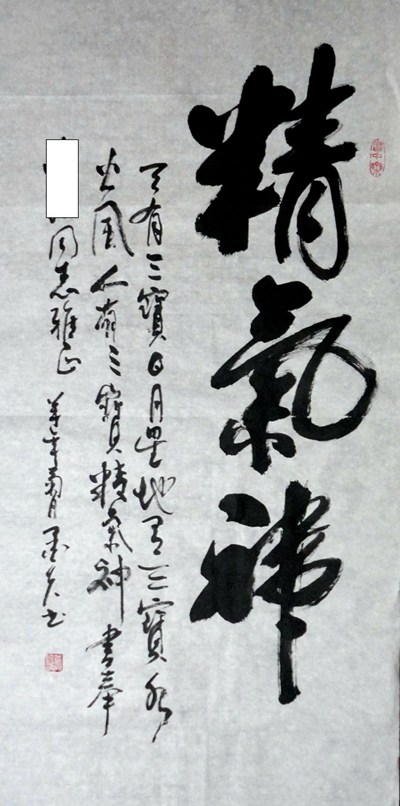 精氣神
天有三寶日月星地有三寶水
火風人有三寶精氣神 書奉
同志雅正 羊年 月 书